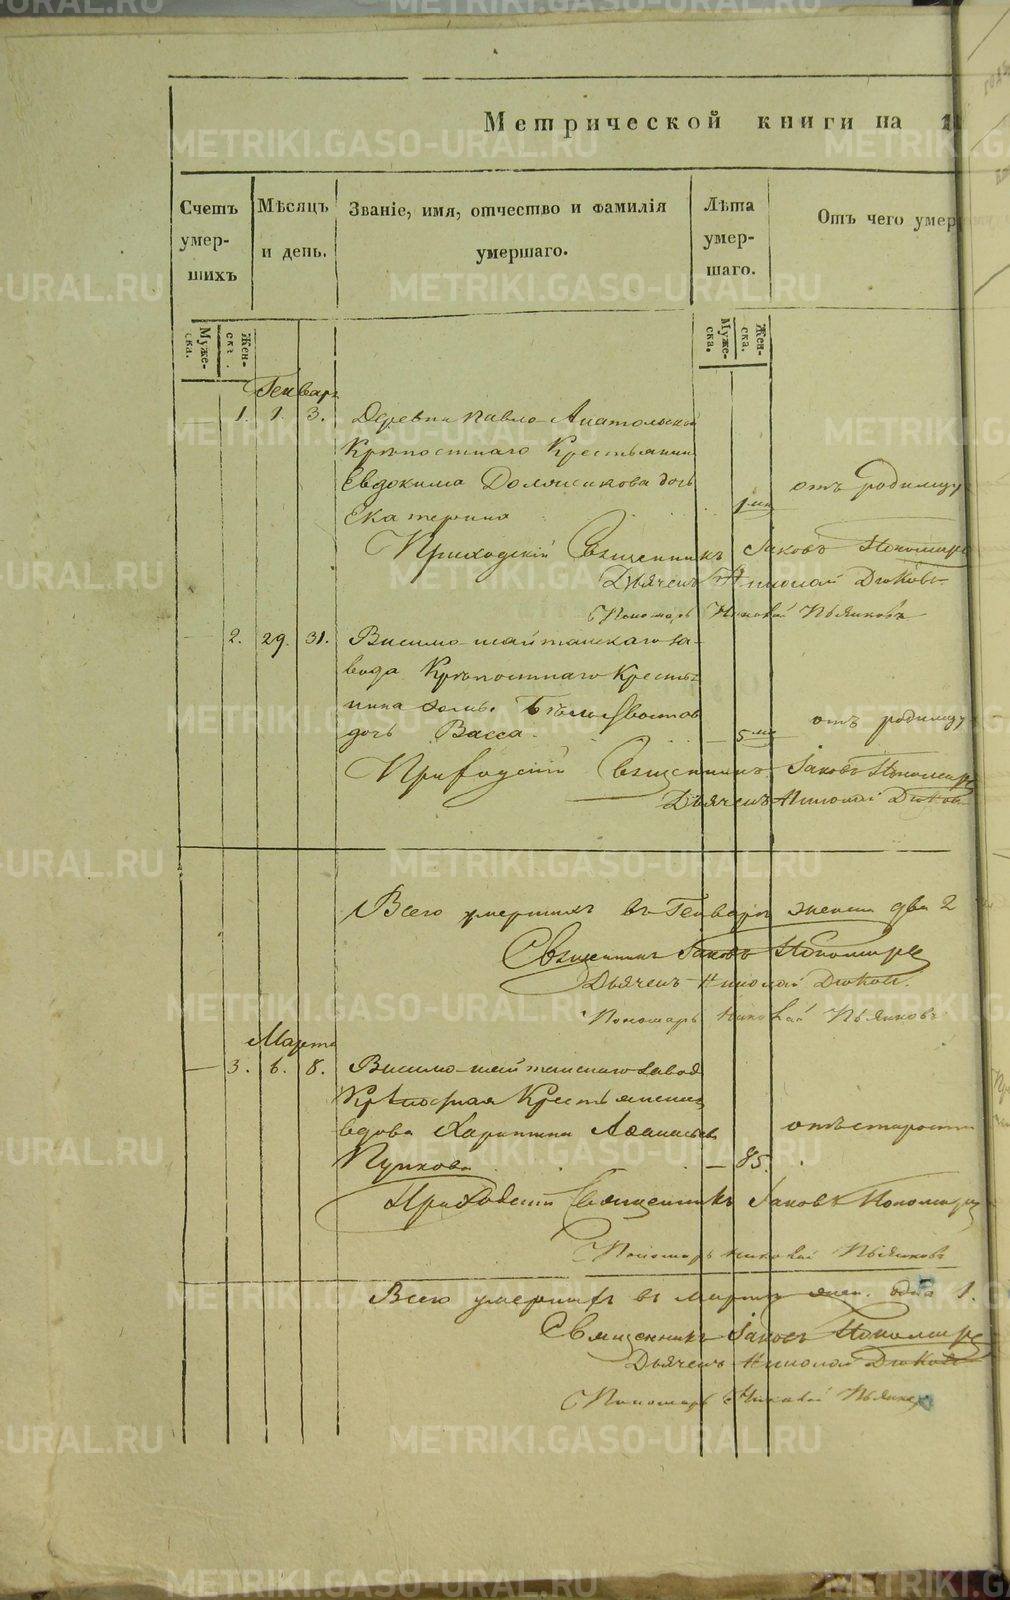 Метрической книги на 1
Счетъ умер- шихъ
Мѣсяцъ и день.
Званіе, имя, отчество и фамилія умершаго.
Лѣта умер- шаго.
Отъ чего умер
Муже- ска.
Жен- ска.
Муже- ска.
Жен- ска.
Генварь
1. 1. 3. Деревни Павло-Анатольской
Крѣпостнаго Крестьянина
Евдокима дочь
Екатерина 1 мѣ отъ родимцу
Приходскій Священникъ Іаковъ Пономаре
Дьячекъ Николай Дюковъ
Пономарь Николай Пьянковъ
2. 29. 31. Висимо-шайтанскаго за-
вода Крѣпостнаго Кресть-
нина
дочь Васса. 5 мѣ отъ родимцу
Приходскій Священникъ Іаковъ Пономаре
Дьячекъ Николай Дюков
Всего умершихъ въ Генварѣ женска два 2
Священникъ Іаковъ Пономаре
Дьячекъ Николай Дюков.
Пономарь Николай Пьянковъ
Марта
3. 6. 8. Висимо-шайтанскаго завода
Крѣпостная Крестьянская
вдова Харитина Аѳанасьева
Пупкова 85. отъ старости
Приходскій Священникъ Іаковъ Пономаре
Пономарь Николай Пьянковъ
Всего умершихъ въ Мартѣ жен. одна 1.
Священникъ Іаковъ Пономаре
Дьячекъ Николай Дюков
Пономарь Николай Пьянков
METRIKI.GASO-URAL.RU